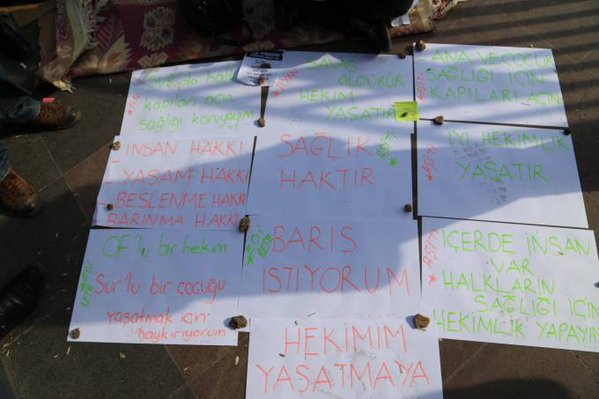 kapıları açın
sağlığı koruyalım
SAVAŞ
ÖLDÜRÜR
HEKİM
YAŞATIR
ANA VE ÇOCUK
SAĞLIĞI İÇİN
KAPILARI AÇIN
- İNSAN HAKKI
- YAŞAM HAKKI
- BESLENME HAKKI
- BARINMA HAKKI
SAĞLIK
HAKTIR
İYİ HEKİMLİK
YAŞATIR
OF'lu bir hekim
Sur'lu bir çocuğu
yaşatmak için
haykırıyorum
BARIŞ
İSTİYORUM
İÇERDE İNSAN
VAR
HALKLARIN
SAĞLIĞI İÇİN
HEKİMLİK YAPAYIM
HEKİMİM
YAŞATMAYA